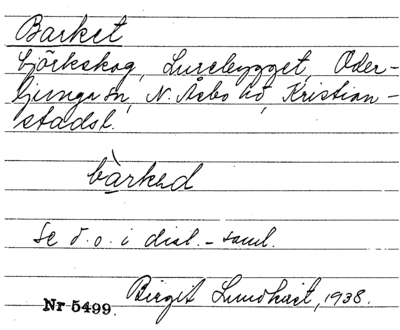 Barket
björkskog, Lurebygget, Oder-
ljunga sn, N. Åsbo hd, Kristian-
stadsl.
bàrkəd
se d. o. i dial. - saml.
Nr 5499. Birgit Lundkvist, 1938.